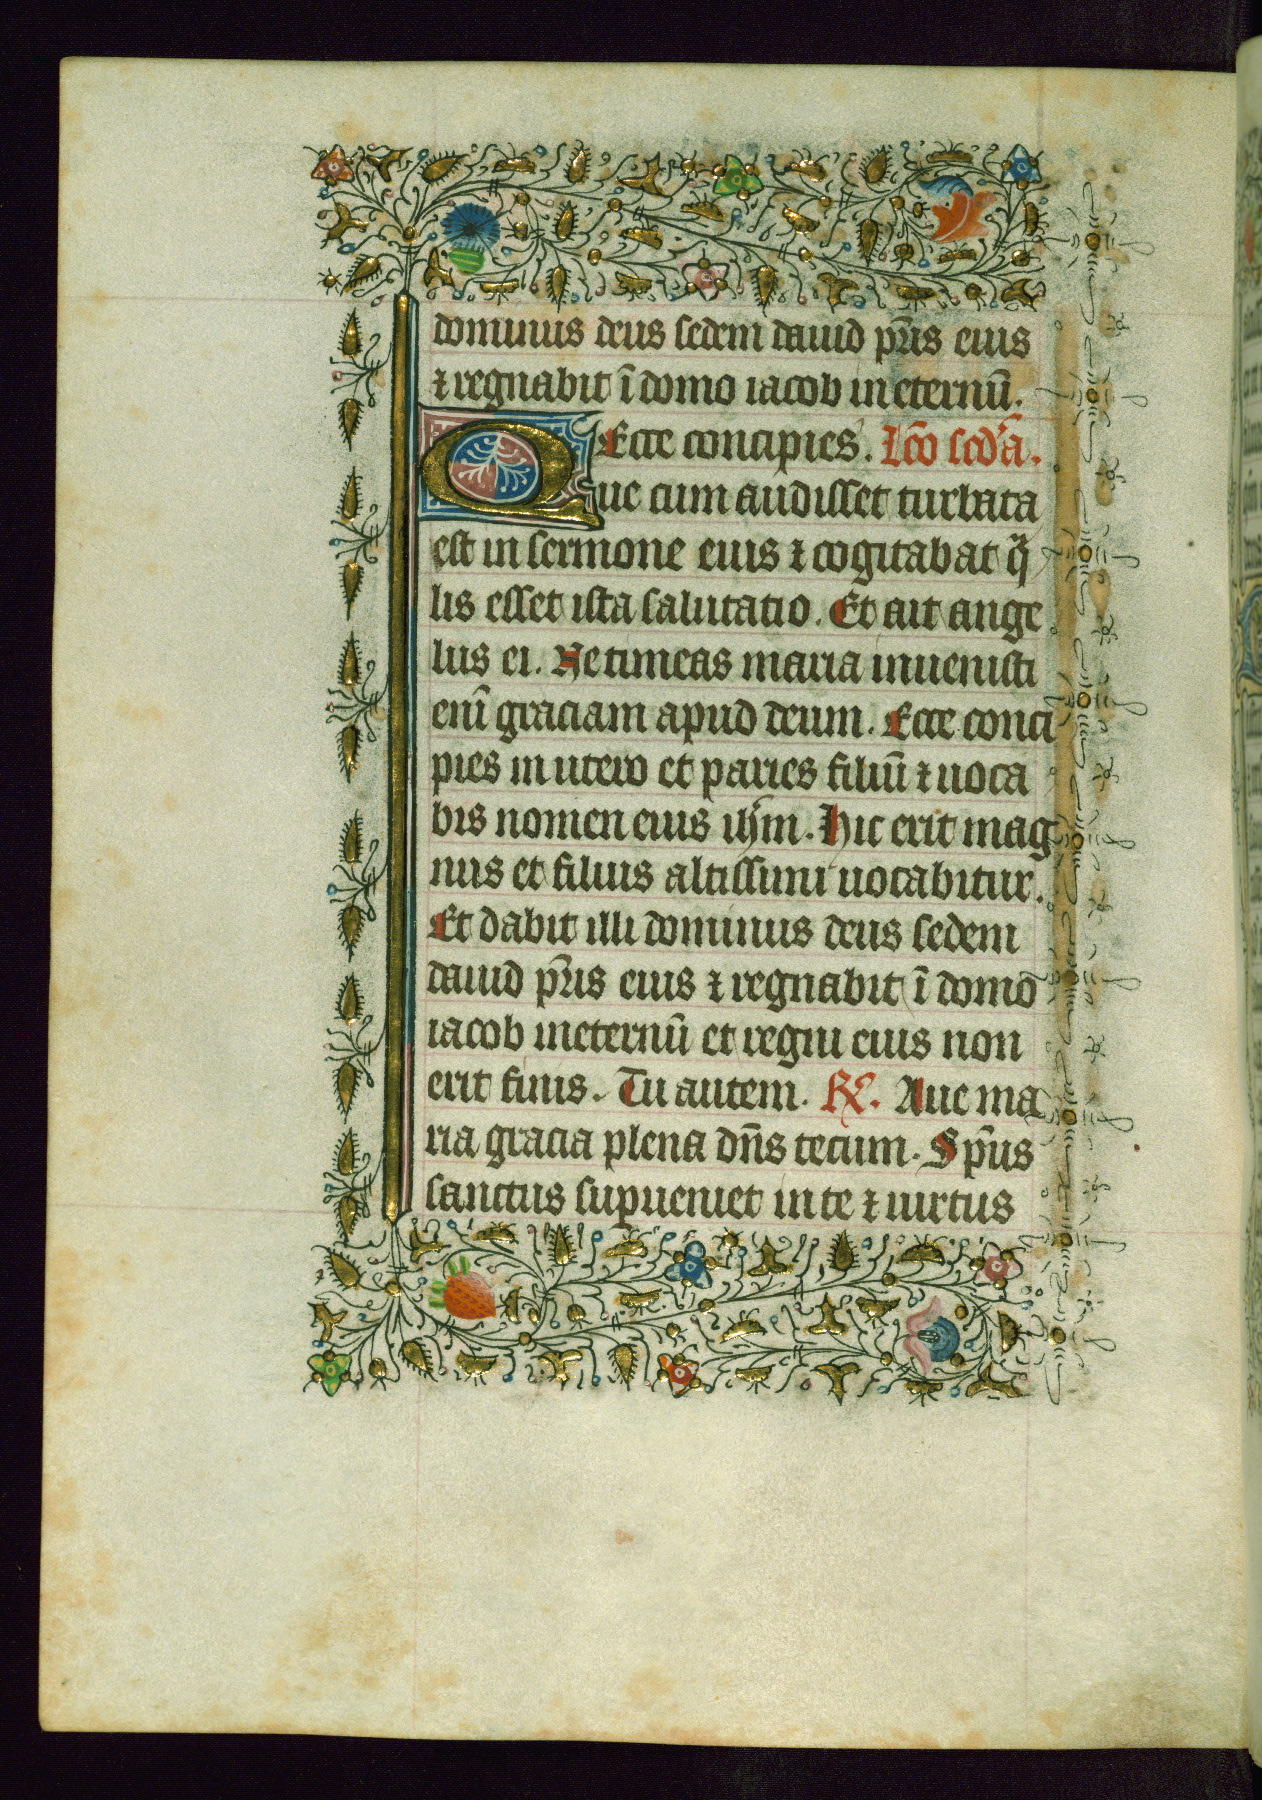 dominus deus sedem dauid p̄ris eius
⁊ regnabit ī domo iacob in eternū.
Ecce concipies. Lc̄o sc̄da.
Que cum audisset turbata
est in sermone eius ⁊ cogitabat q̄
lis esset ista salutatio. Et ait ange
lus ei. Ne timeas maria inuenisti
enī graciam apud deum. Ecce conci
pies in utero et paries filiū ⁊ uoca
bis nomen eius ih̄m. Hic erit mag
nus et filius altissimi uocabitur.
Et dabit illi dominus deus sedem
dauid p̄ris eius ⁊ regnabit ī domo
iacob in eternū et regni eius non
erit finis. Tu autem. ℟. Aue ma
ria gracia plena dn̄s tecum. Sp̄us
sanctus supueniet in te ⁊ uirtus